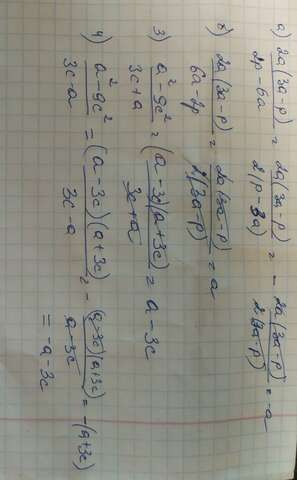 a) 2a(3a-p)/2p-6a = 2a(3a-p)/2(p-3a) = - 2a(3a-p)/2(3a-p) = -a
2a(3a-p)/6a-2p = 2a(3a-p)/2(3a-p) = a
3) a²-9c²/3c+a = (a-3c)(a+3c)/3c+a = a-3c
4) a²-9c²/3c-a = (a-3c)(a+3c)/3c-a = - (a-3c)(a+3c)/a-3c = -(a+3c)
= -a-3c